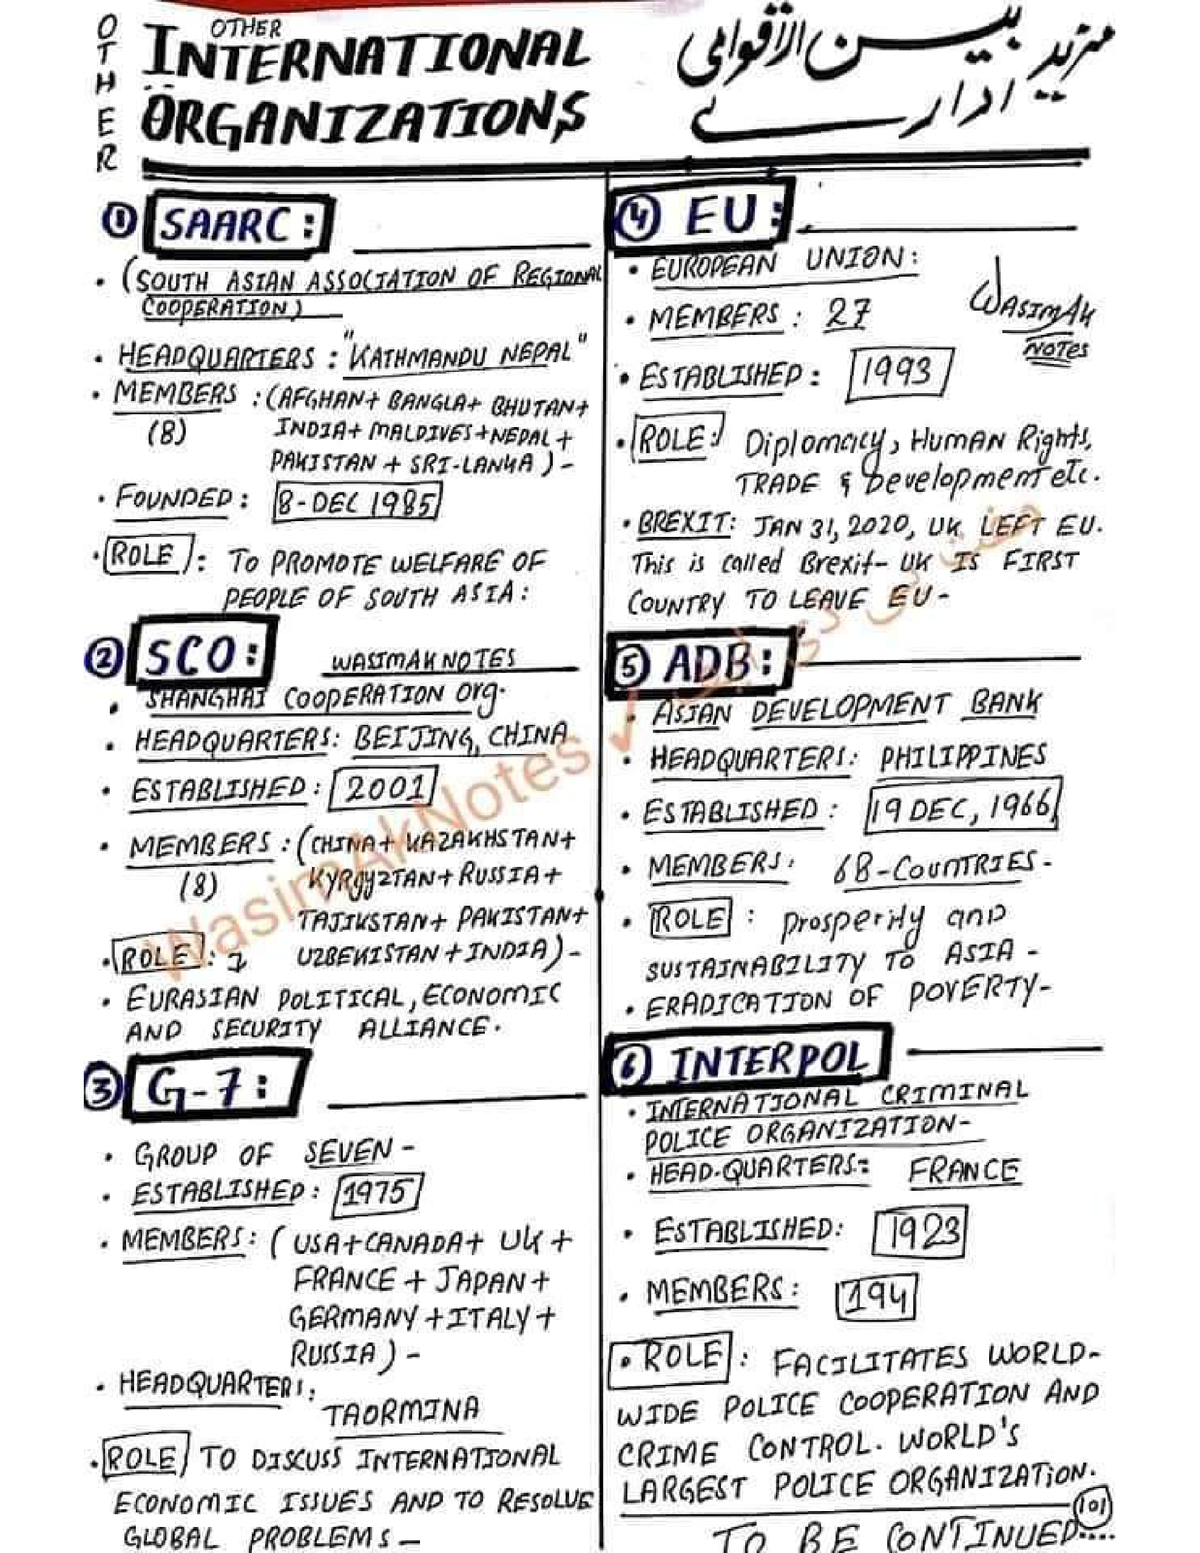 OTHER
OTHER
INTERNATIONAL
ORGANIZATIONS
مزید بین الاقوامی
ادارے
① SAARC:
• (SOUTH ASIAN ASSOCIATION OF REGIONAL
COOPERATION)
• HEADQUARTERS : "KATHMANDU NEPAL"
• MEMBERS : (AFGHAN+ BANGLA+ BHUTAN+
(8) INDIA+ MALDIVES+NEPAL+
PAKISTAN + SRI-LANKA) -
• FOUNDED : 8-DEC 1985
• ROLE : TO PROMOTE WELFARE OF
PEOPLE OF SOUTH ASIA:
② SCO: WASIMAK NOTES
• SHANGHAI COOPERATION Org.
• HEADQUARTERS: BEIJING, CHINA
• ESTABLISHED : 2001
• MEMBERS : (CHINA+ KAZAKHSTAN+
(8) KYRgyzTAN+ RUSSIA+
TAJIKSTAN+ PAKISTAN+
UZBEKISTAN + INDIA) -
• ROLE :
• EURASIAN POLITICAL, ECONOMIC
AND SECURITY ALLIANCE.
③ G-7:
• GROUP OF SEVEN -
• ESTABLISHED : 1975
• MEMBERS : ( USA+CANADA+ UK +
FRANCE + JAPAN+
GERMANY +ITALY+
RUSSIA) -
• HEADQUARTERS:
TAORMINA
• ROLE TO DISCUSS INTERNATIONAL
ECONOMIC ISSUES AND TO RESOLVE
GLOBAL PROBLEMS -
④ EU:
• EUROPEAN UNION:
WASIMAK
NOTES
• MEMBERS : 27
• ESTABLISHED : 1993
• ROLE: Diplomacy, HUMAN Rights,
TRADE & Development etc.
• BREXIT: JAN 31, 2020, UK LEFT EU.
This is called Brexit- UK IS FIRST
COUNTRY TO LEAVE EU -
⑤ ADB:
• ASIAN DEVELOPMENT BANK
• HEADQUARTERS: PHILIPPINES
• ESTABLISHED : 19 DEC, 1966
• MEMBERS: 68-COUNTRIES-
• ROLE : prosperity and
SUSTAINABILITY TO ASIA -
• ERADICATION OF POVERTY-
⑥ INTERPOL
• INTERNATIONAL CRIMINAL
POLICE ORGANIZATION-
• HEAD-QUARTERS: FRANCE
• ESTABLISHED: 1923
• MEMBERS : 194
• ROLE : FACILITATES WORLD-
WIDE POLICE COOPERATION AND
CRIME CONTROL. WORLD'S
LARGEST POLICE ORGANIZATION.
101
TO BE CONTINUED....
WasimAkNotes